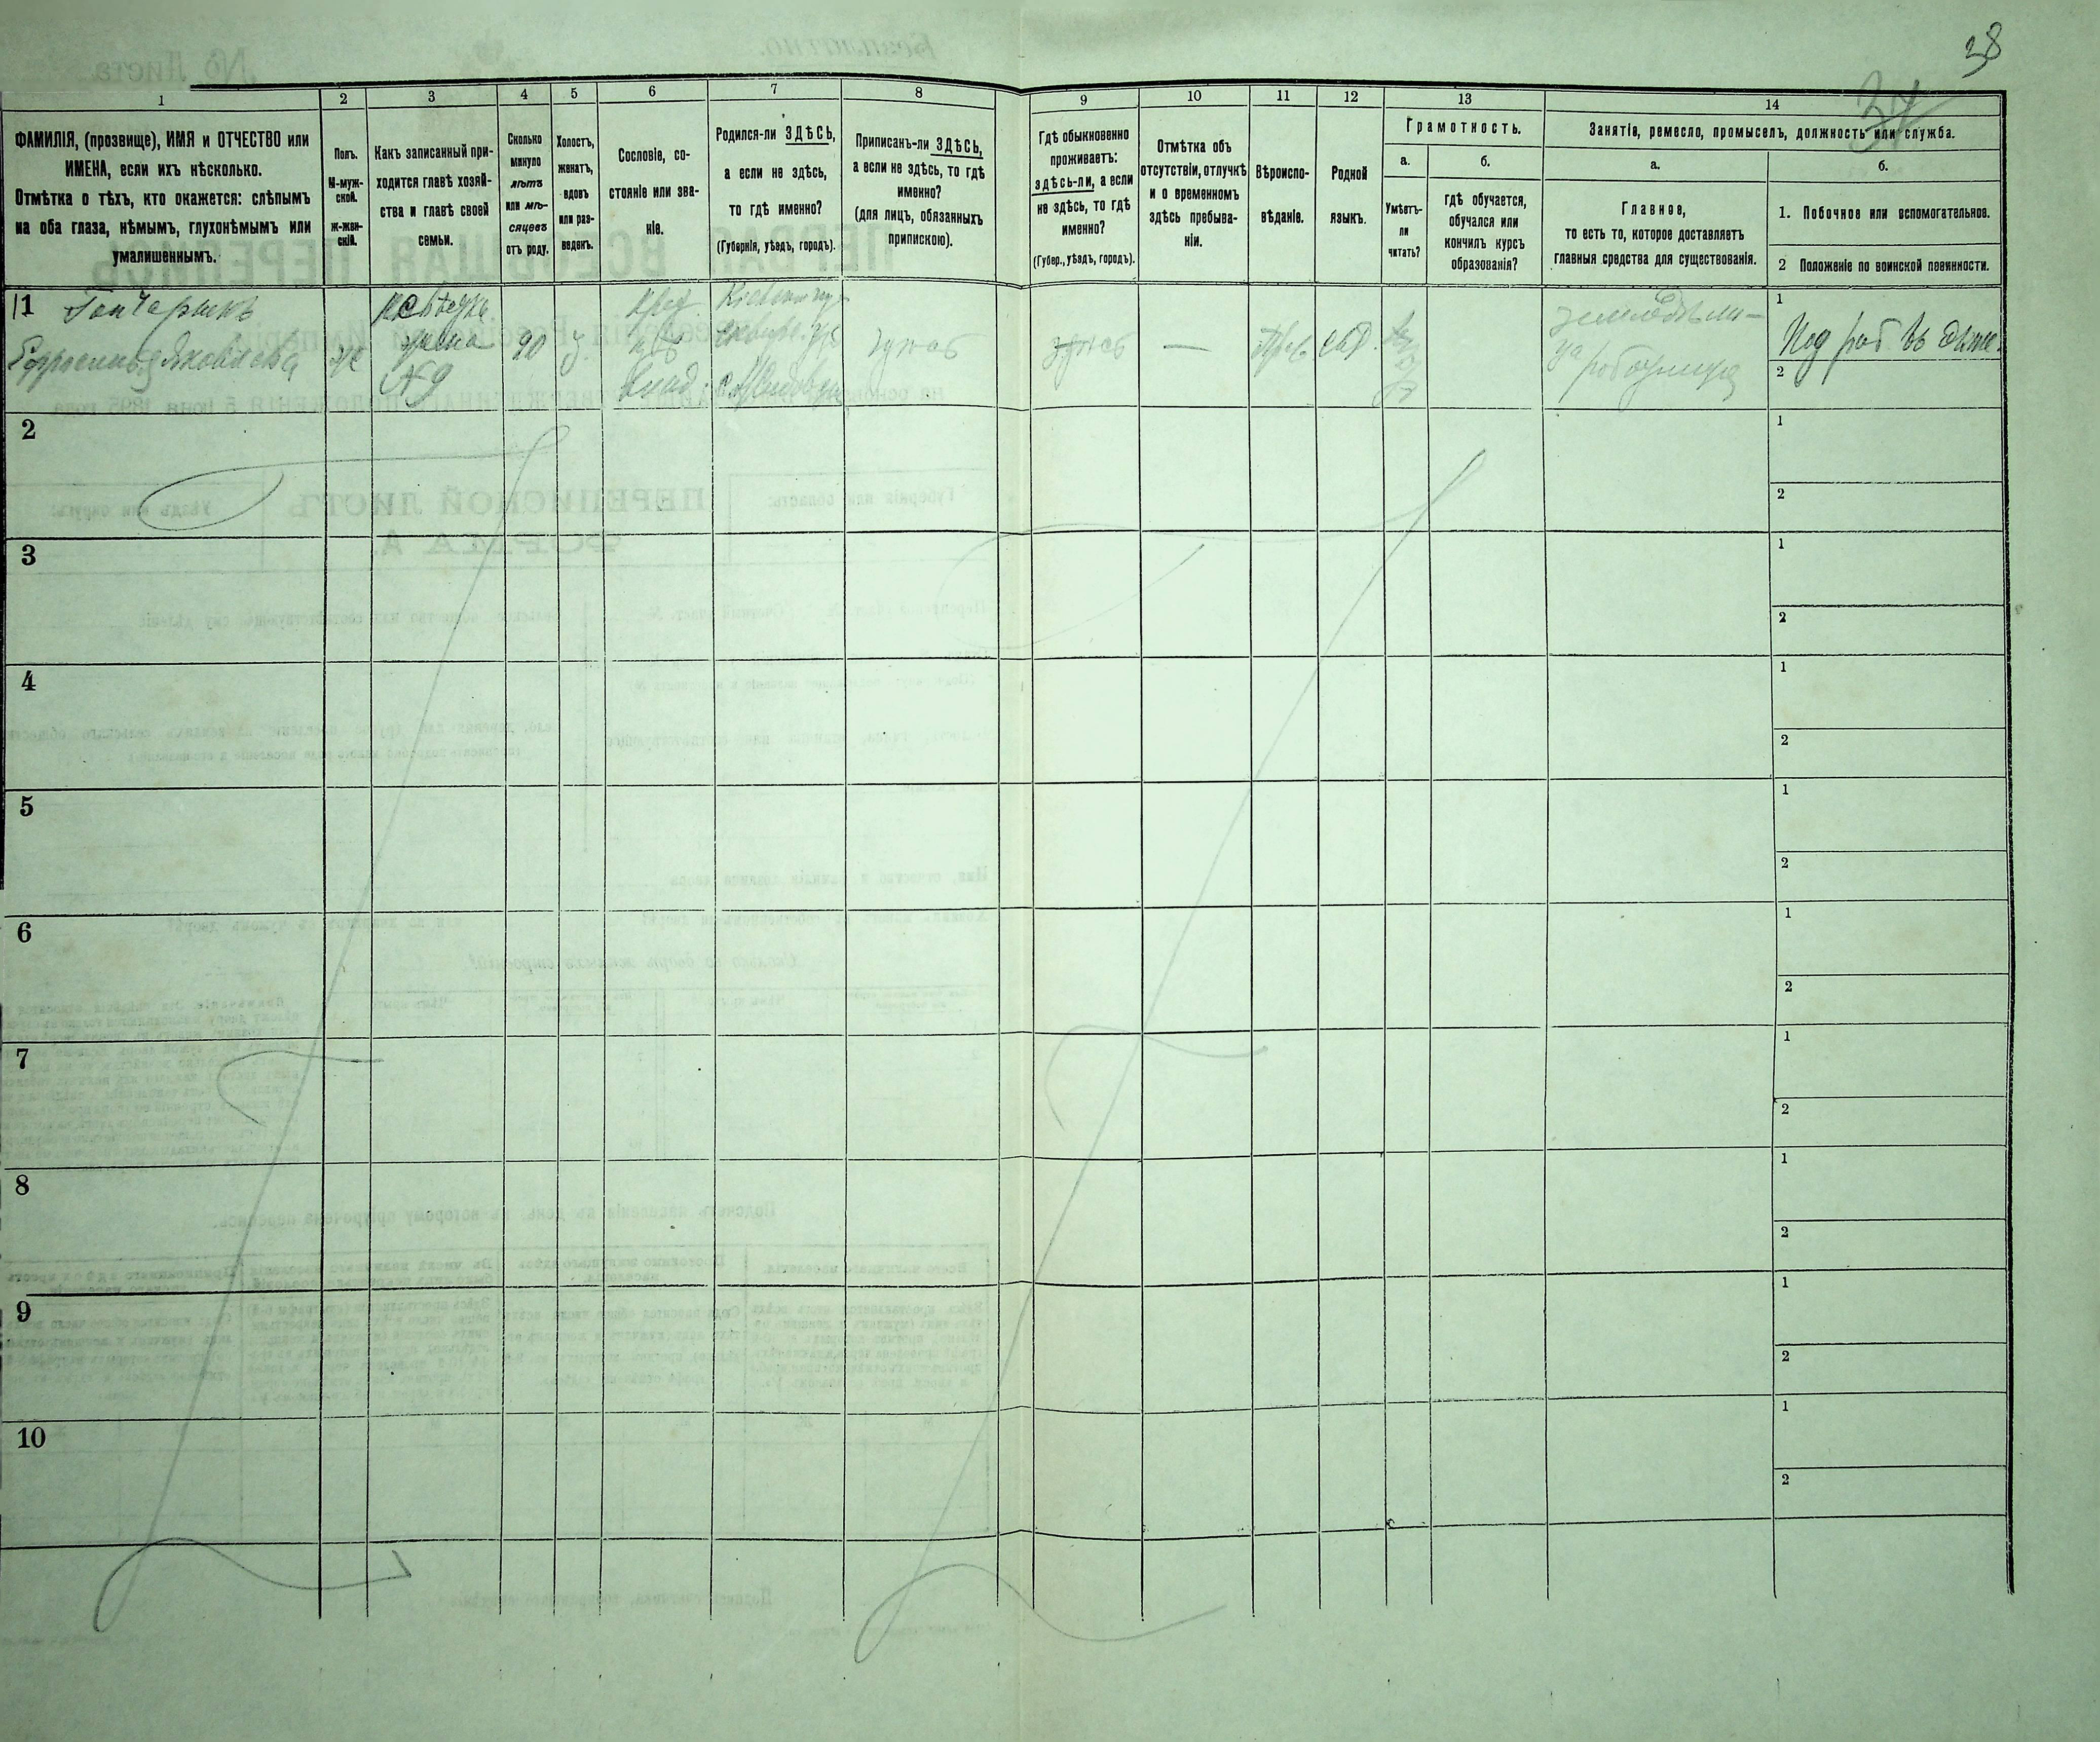 38
34
1
2
3
4
5
6
7
8
9
10
11
12
13
14
ФАМИЛІЯ, (прозвище), ИМЯ и ОТЧЕСТВО или
ИМЕНА, если ихъ нѣсколько.
Отмѣтка о тѣхъ, кто окажется: слѣпымъ
на оба глаза, нѣмымъ, глухонѣмымъ или
умалишеннымъ.
Полъ.
М-муж-
ской.
Ж-жен-
скій.
Какъ записанный при-
ходится главѣ хозяй-
ства и главѣ своей
семьи.
Сколько
минуло
лѣтъ
или мѣ-
сяцевъ
отъ роду.
Холостъ,
женатъ,
вдовъ
или раз-
веденъ.
Сословіе, со-
стояніе или зва-
ніе.
Родился-ли ЗДѢСЬ,
а если не здѣсь,
то гдѣ именно?
(Губернія, уѣздъ, городъ).
Приписанъ-ли ЗДѢСЬ,
а если не здѣсь, то гдѣ
именно?
(для лицъ, обязанныхъ
припискою).
Гдѣ обыкновенно
проживаетъ:
здѣсь-ли, а если
не здѣсь, то гдѣ
именно?
(Губер., уѣздъ, городъ).
Отмѣтка объ
отсутствіи, отлучкѣ
и о временномъ
здѣсь пребыва-
ніи.
Вѣроиспо-
вѣданіе.
Родной
языкъ.
Грамотность.
а.
Умѣетъ-
ли
читать?
б.
Гдѣ обучается,
обучался или
кончилъ курсъ
образованія?
Занятіе, ремесло, промыселъ, должность или служба.
а.
Главное,
то есть то, которое доставляетъ
главныя средства для существованія.
б.
1. Побочное или вспомогательное.
2 Положеніе по воинской повинности.
1 Гончарукъ
Яковлева
ж
жена
№9
90
з.
крест.
Кіевск. губ
сквир. у.
здѣсь
здѣсь
—
Прав.
земледѣли-
работница
1
Под раб въ
2
2
1
2
3
1
2
4
1
2
5
1
2
6
1
2
7
1
2
8
1
2
9
1
2
10
1
2